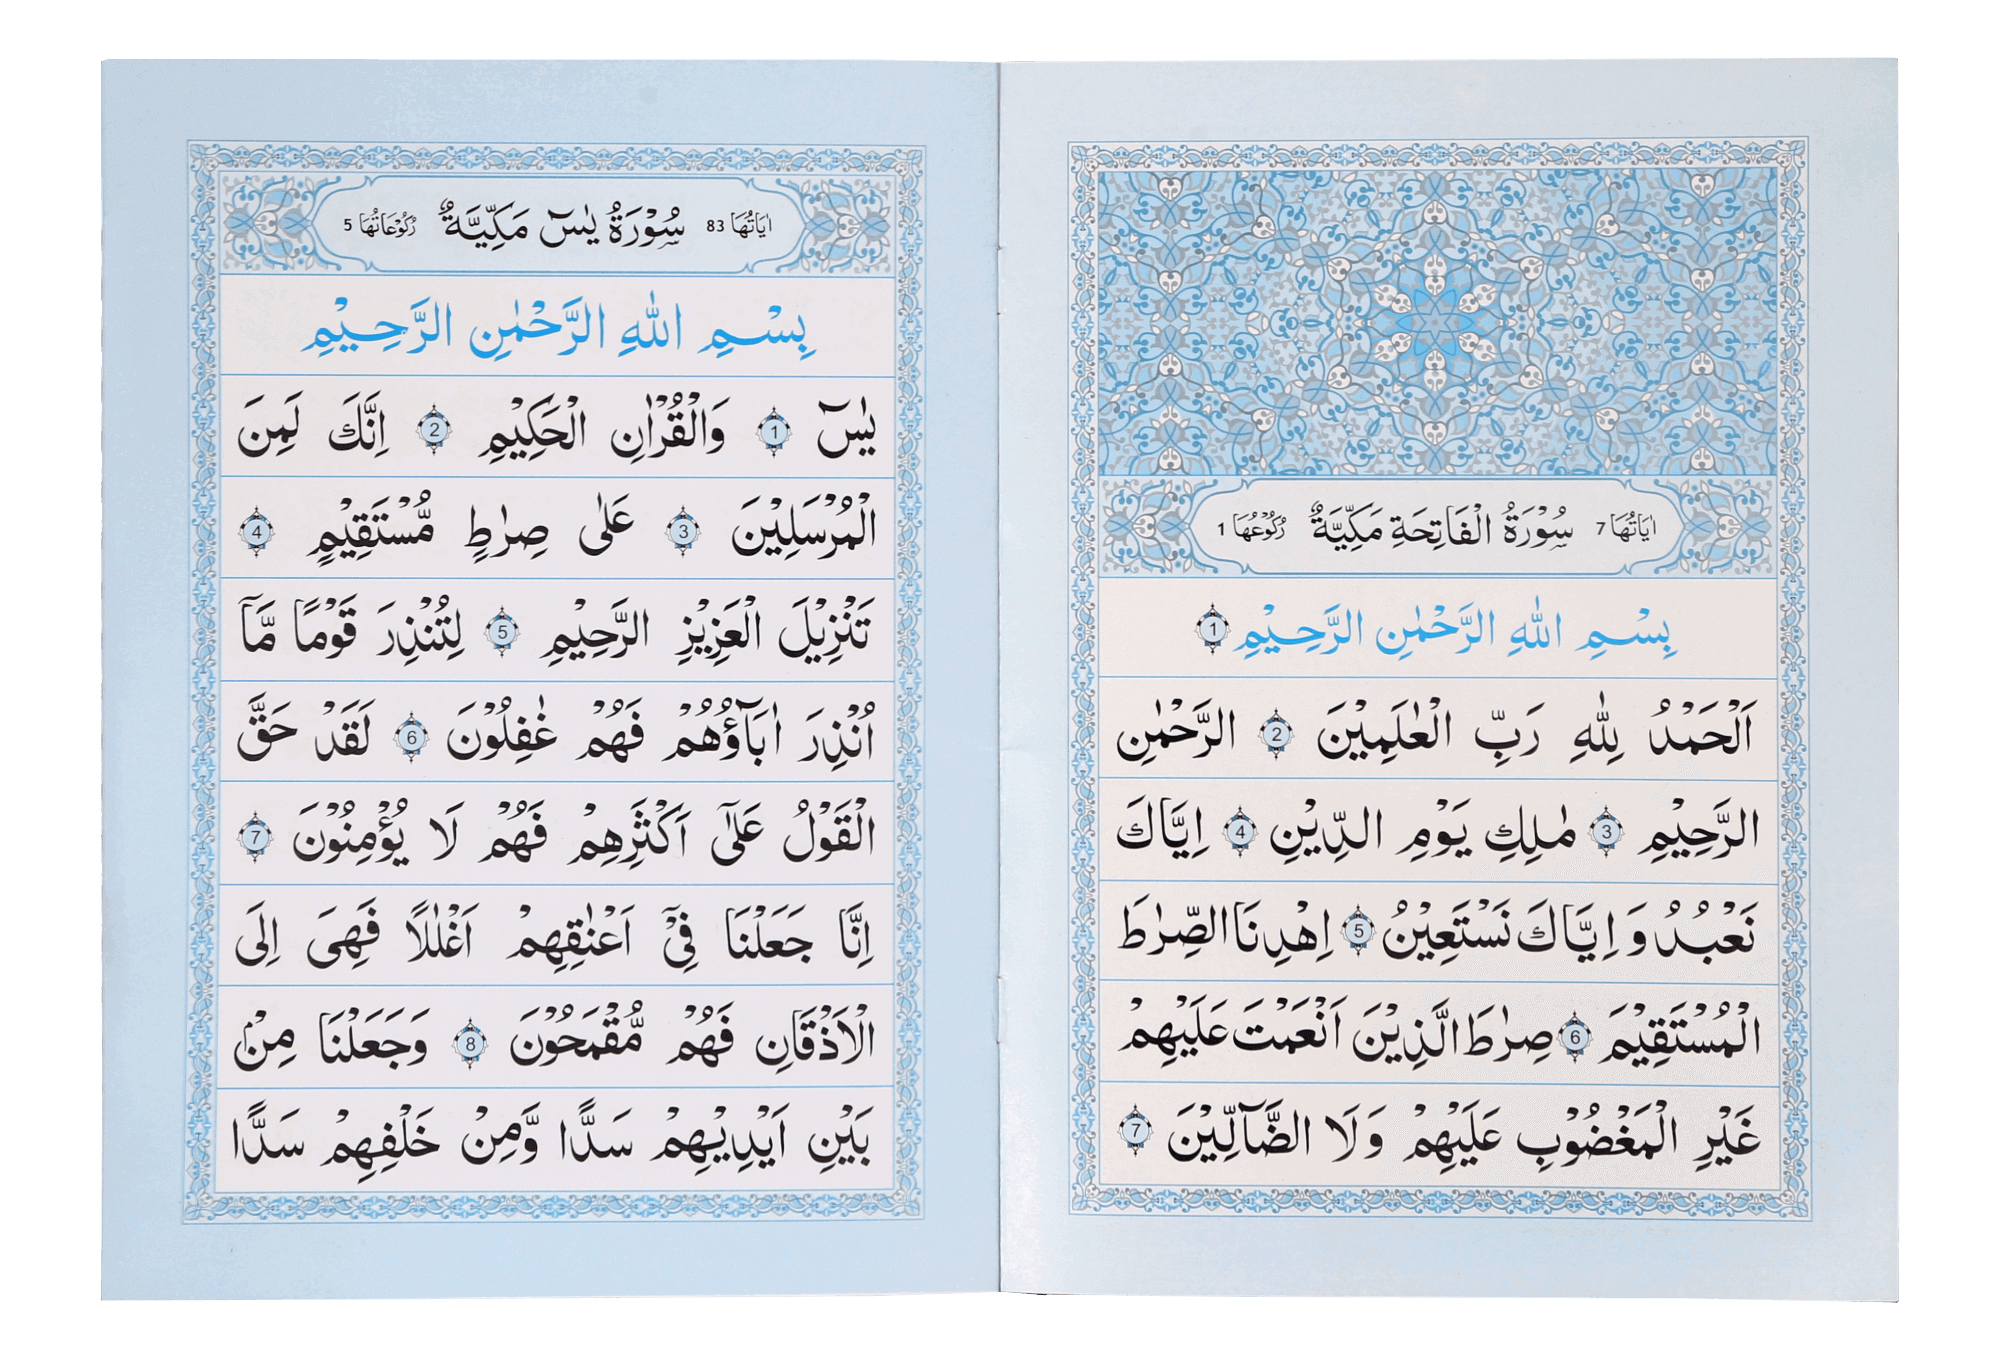 اٰيَاتُهَا 7 سُوْرَةُ الْفَاتِحَةِ مَكِّيَّةٌ رُكُوْعُهَا 1
بِسْمِ اللّٰهِ الرَّحْمٰنِ الرَّحِيْمِ 1
اَلْحَمْدُ لِلّٰهِ رَبِّ الْعٰلَمِيْنَ 2 الرَّحْمٰنِ
الرَّحِيْمِ 3 مٰلِكِ يَوْمِ الدِّيْنِ 4 اِيَّاكَ
نَعْبُدُ وَ اِيَّاكَ نَسْتَعِيْنُ 5 اِهْدِنَا الصِّرٰطَ
الْمُسْتَقِيْمَ 6 صِرٰطَ الَّذِيْنَ اَنْعَمْتَ عَلَيْهِمْ
غَيْرِ الْمَغْضُوْبِ عَلَيْهِمْ وَلَا الضَّآلِّيْنَ 7
اٰيَاتُهَا 83 سُوْرَةُ يٰسٓ مَكِّيَّةٌ رُكُوْعَاتُهَا 5
بِسْمِ اللّٰهِ الرَّحْمٰنِ الرَّحِيْمِ
يٰسٓ 1 وَالْقُرْاٰنِ الْحَكِيْمِ 2 اِنَّكَ لَمِنَ
الْمُرْسَلِيْنَ 3 عَلٰى صِرٰطٍ مُّسْتَقِيْمٍ 4
تَنْزِيْلَ الْعَزِيْزِ الرَّحِيْمِ 5 لِتُنْذِرَ قَوْمًا مَّآ
اُنْذِرَ اٰبَآؤُهُمْ فَهُمْ غٰفِلُوْنَ 6 لَقَدْ حَقَّ
الْقَوْلُ عَلٰٓى اَكْثَرِهِمْ فَهُمْ لَا يُؤْمِنُوْنَ 7
اِنَّا جَعَلْنَا فِىْٓ اَعْنٰقِهِمْ اَغْلٰلًا فَهِىَ اِلَى
الْاَذْقَانِ فَهُمْ مُّقْمَحُوْنَ 8 وَجَعَلْنَا مِنْۢ
بَيْنِ اَيْدِيْهِمْ سَدًّا وَّمِنْ خَلْفِهِمْ سَدًّا